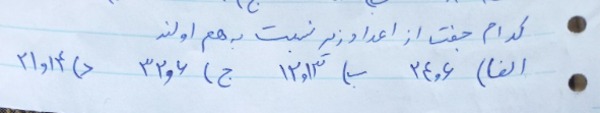 کدام جفت از اعداد زیر نسبت به هم اولند
الف) ۲۴و۶ ب) ۱۲و۱۳ ج) ۳۲و۶ د) ۲۱و۱۴